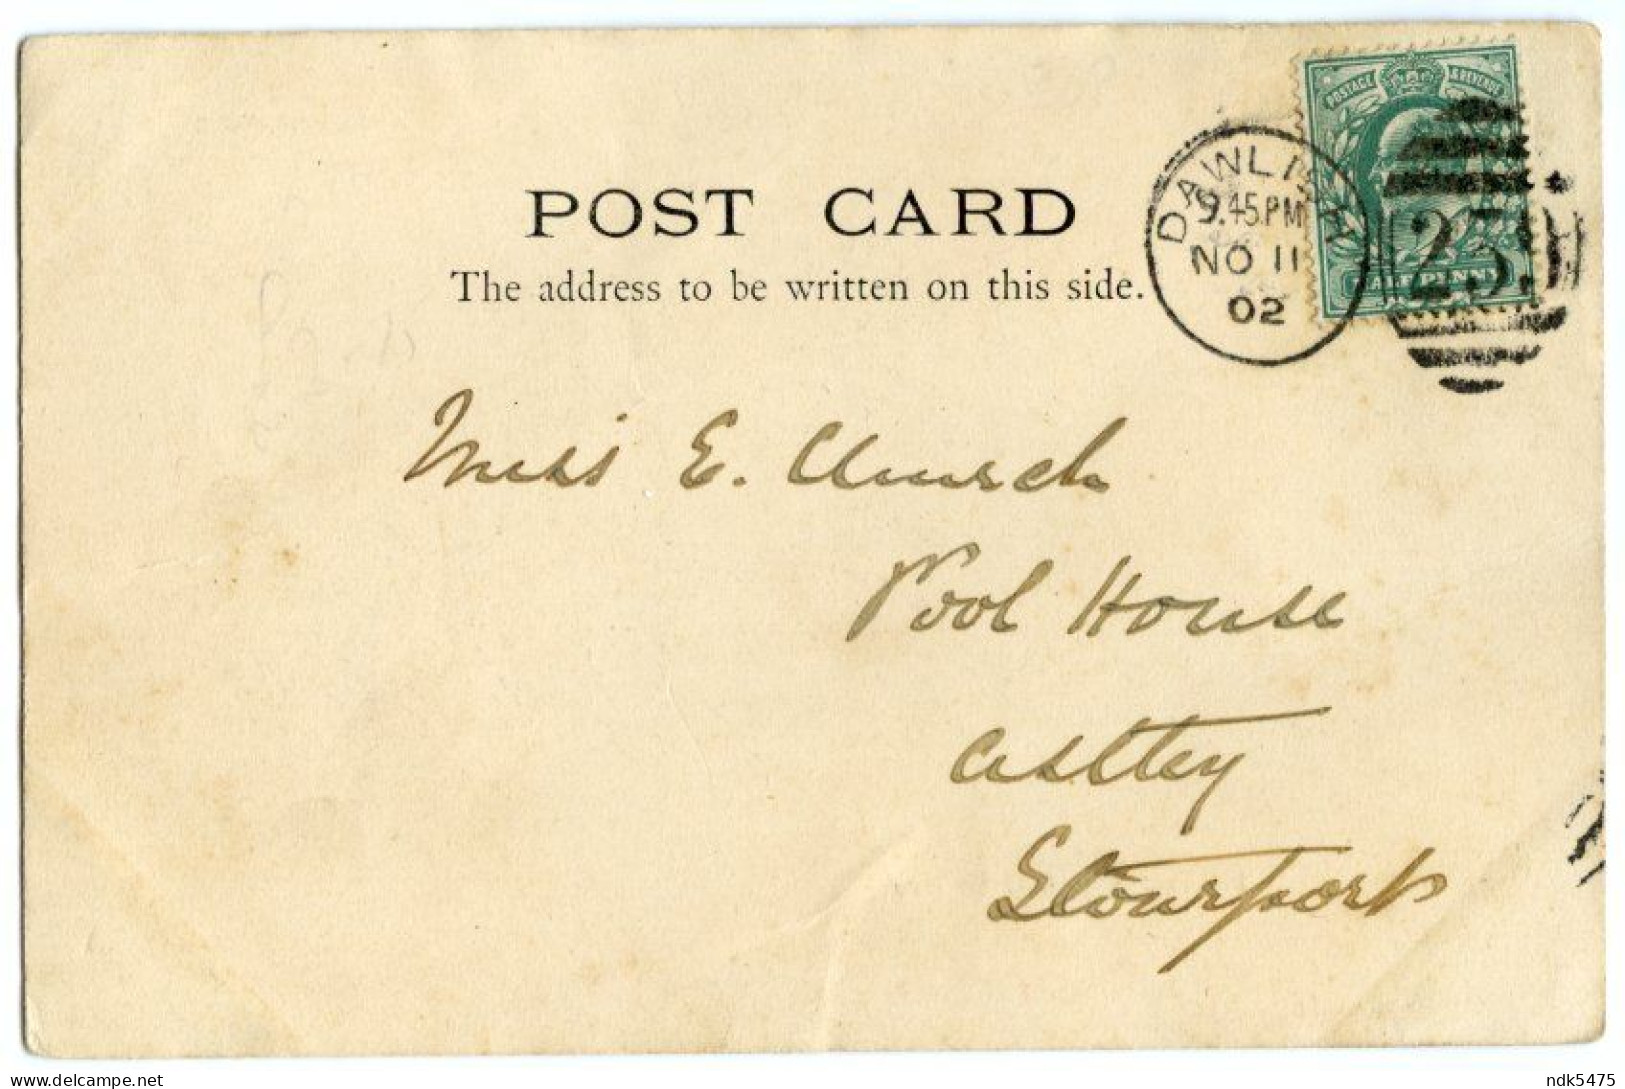 POST CARD
The address to be written on this side.
POSTAGE & REVENUE
DAWLISH
9.45 PM
NO 11
02
Miss E. Church
Pool House
Astley
Stourport
delcampe.net
ndk5475